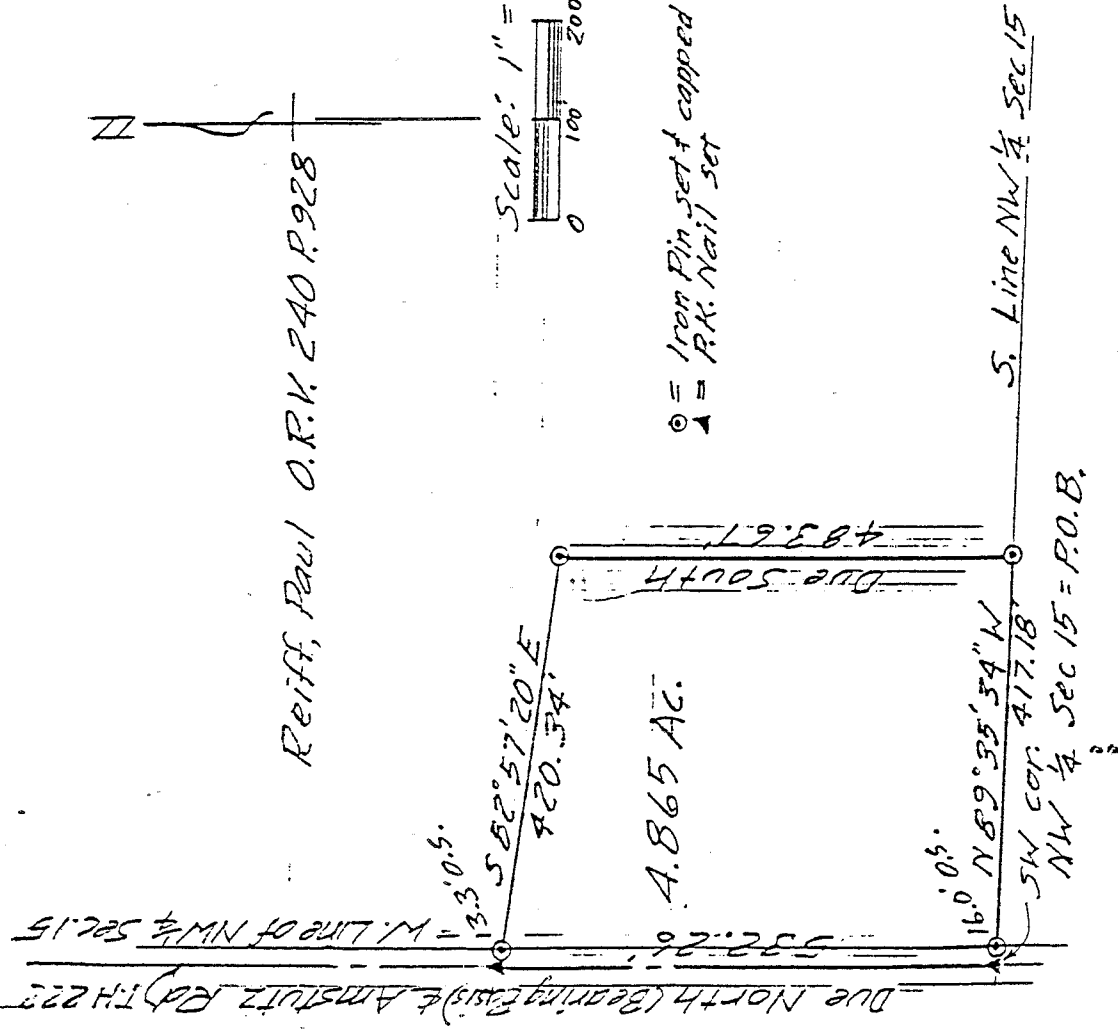 N
Reiff, Paul O.R.V. 240 P. 928
Scale: 1" =
0 100' 200
⊙ = Iron Pin set & capped
▲ = P.K. Nail set
S. Line NW ¼ Sec 15
Due South
483.67'
S 82° 57' 20" E
420.34'
4.865 Ac.
13.3' O.S.
16.0' O.S.
N 89° 35' 34" W
417.18'
SW cor.
NW ¼ Sec 15 = P.O.B.
532.26'
= W. Line of NW ¼ Sec. 15
Due North (Bearing Basis) ℄ Amstutz Rd) TH 222